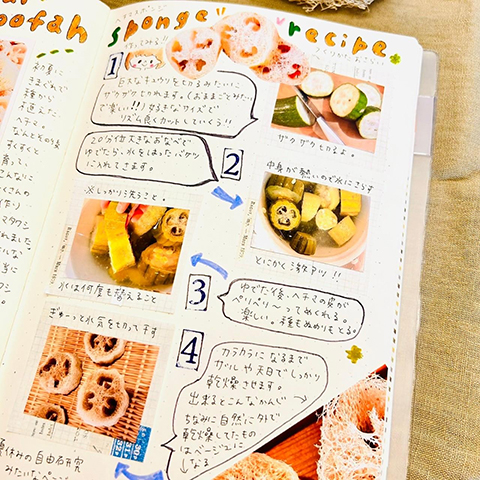 oofah
sponge recipe
ヘチマスポンジ
つくりかた
作ってみる!!
1
巨大なキュウリを切るみたいに
ザクザク切れます。(おままごとみたい
で楽しい!!) 好きなサイズで
リズム良くカットしていくぅ!!
ザクザク切れるよ。
20分位大きなおなべで
ゆでたら、水をはったバケツ
に入れてきます。
2
中身が熱いので水にさらす
とにかく激アツ!!
※しっかり洗うこと。
水は何度も替えること
3
ゆでた後、ヘチマの皮が
ペリペリ〜ってめくれる。
楽しい。種もぬめりもとる。
ぎゅーっと水気を切って干す
4
カラカラになるまで
ザルや天日でしっかり
乾燥させます。
出来るとこんなかんじ
ちなみに自然に外で
乾燥したもの
はベージュに
なる
夏休みの自由研究
みたいなページ
初夏に
種から
ヘチマ。
すくすくと
育って、
こんなに
たくさんの
作り
ヘタワシ